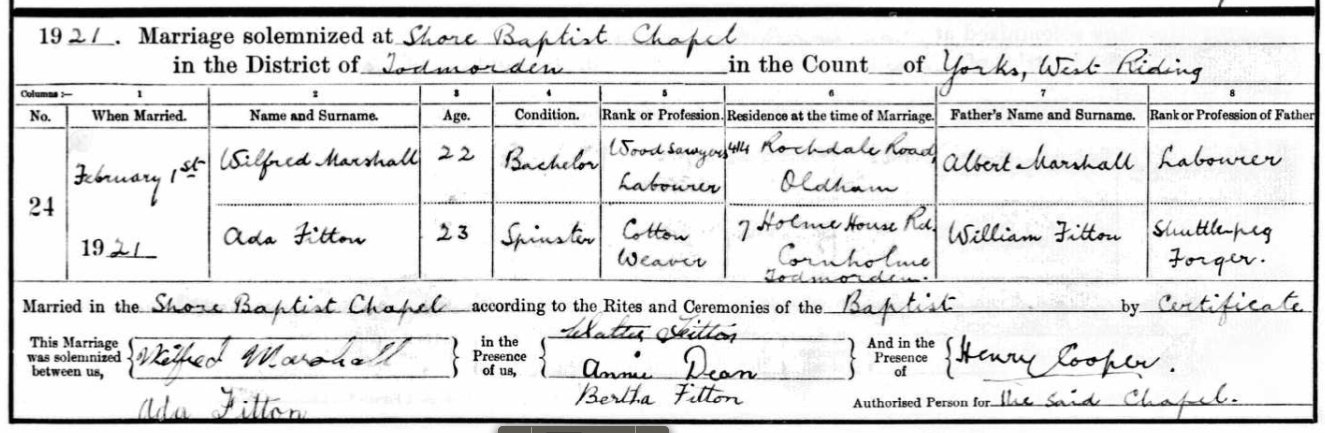 1921. Marriage solemnized at Shore Baptist Chapel
in the District of Todmorden in the Count of Yorks, West Riding
Columns :— 1 2 3 4 5 6 7 8
No. When Married. Name and Surname. Age. Condition. Rank or Profession. Residence at the time of Marriage. Father's Name and Surname. Rank or Profession of Father
24
February 1st
1921
Wilfred Marshall 22 Bachelor Wood Sawyers Labourer 414 Rochdale Road, Oldham Albert Marshall Labourer
Ada Fitton 23 Spinster Cotton Weaver 7 Holme House Rd. Cornholme Todmorden. William Fitton Shuttlepeg Forger.
Married in the Shore Baptist Chapel according to the Rites and Ceremonies of the Baptist by Certificate
This Marriage was solemnized between us,
Wilfred Marshall
Ada Fitton
in the Presence of us,
Walter Fitton
Annie Dean
Bertha Fitton
And in the Presence of
Henry Cooper.
Authorised Person for the said Chapel.